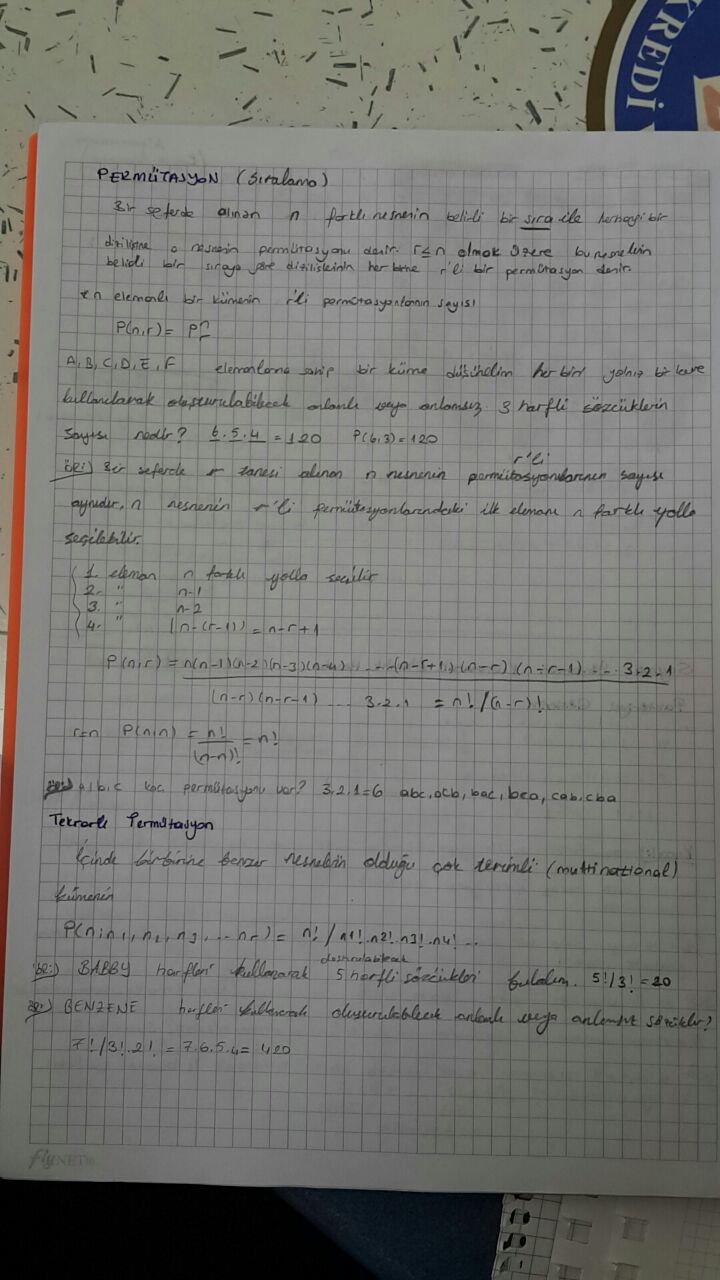 KREDİ
PERMÜTASYON (Sıralama)
Bir seferde alınan n farklı nesnenin belirli bir sıra ile herhangi bir
dizilişine o nesnenin permütasyonu denir. r≤n olmak üzere bu nesnelerin
belirli bir sıraya göre dizilişlerinin her birine r'li bir permütasyon denir.
*n elemanlı bir kümenin r'li permütasyonlarının sayısı
P(n,r) =
A, B, C, D, E, F elemanlarına sahip bir küme düşünelim her biri yalnız bir kere
kullanılarak oluşturulabilecek anlamlı veya anlamsız 3 harfli sözcüklerin
sayısı nedir? 6.5.4 = 120 P(6,3) = 120
r'li
ÖR:) Bir seferde r tanesi alınan n nesnenin permütasyonlarının sayısı
aynıdır, n nesnenin r'li permütasyonlarındaki ilk elemanı n farklı yolla
seçilebilir.
1. eleman n farklı yolla seçilir
2. " n-1
3. " n-2
4. " (n-(r-1)) = n-r+1
P(n,r) = n(n-1)(n-2)(n-3)(n-4) ... (n-r+1).(n-r).(n-r-1) ... 3.2.1
(n-r)(n-r-1) ... 3.2.1 = n!/(n-r)!
r=n P(n,n) = n!/(n-n)! = n!
a,b,c kaç permütasyonu var? 3.2.1=6 abc, acb, bac, bca, cab, cba
Tekrarlı Permütasyon
İçinde birbirine benzer nesnelerin olduğu çok terimli (multinational)
kümenin
P(n;n1, n2, n3, ... nr) = n! / n1!.n2!.n3!.n4! ...
oluşturulabilecek
ÖR:) BABBY harfleri kullanarak 5 harfli sözcükleri bulalım. 5!/3! = 20
ÖR:) BENZENE harfleri kullanarak oluşturulabilecek anlamlı veya anlamsız sözcükler?
7!/3!.2! = 7.6.5.4 = 420
flyNET